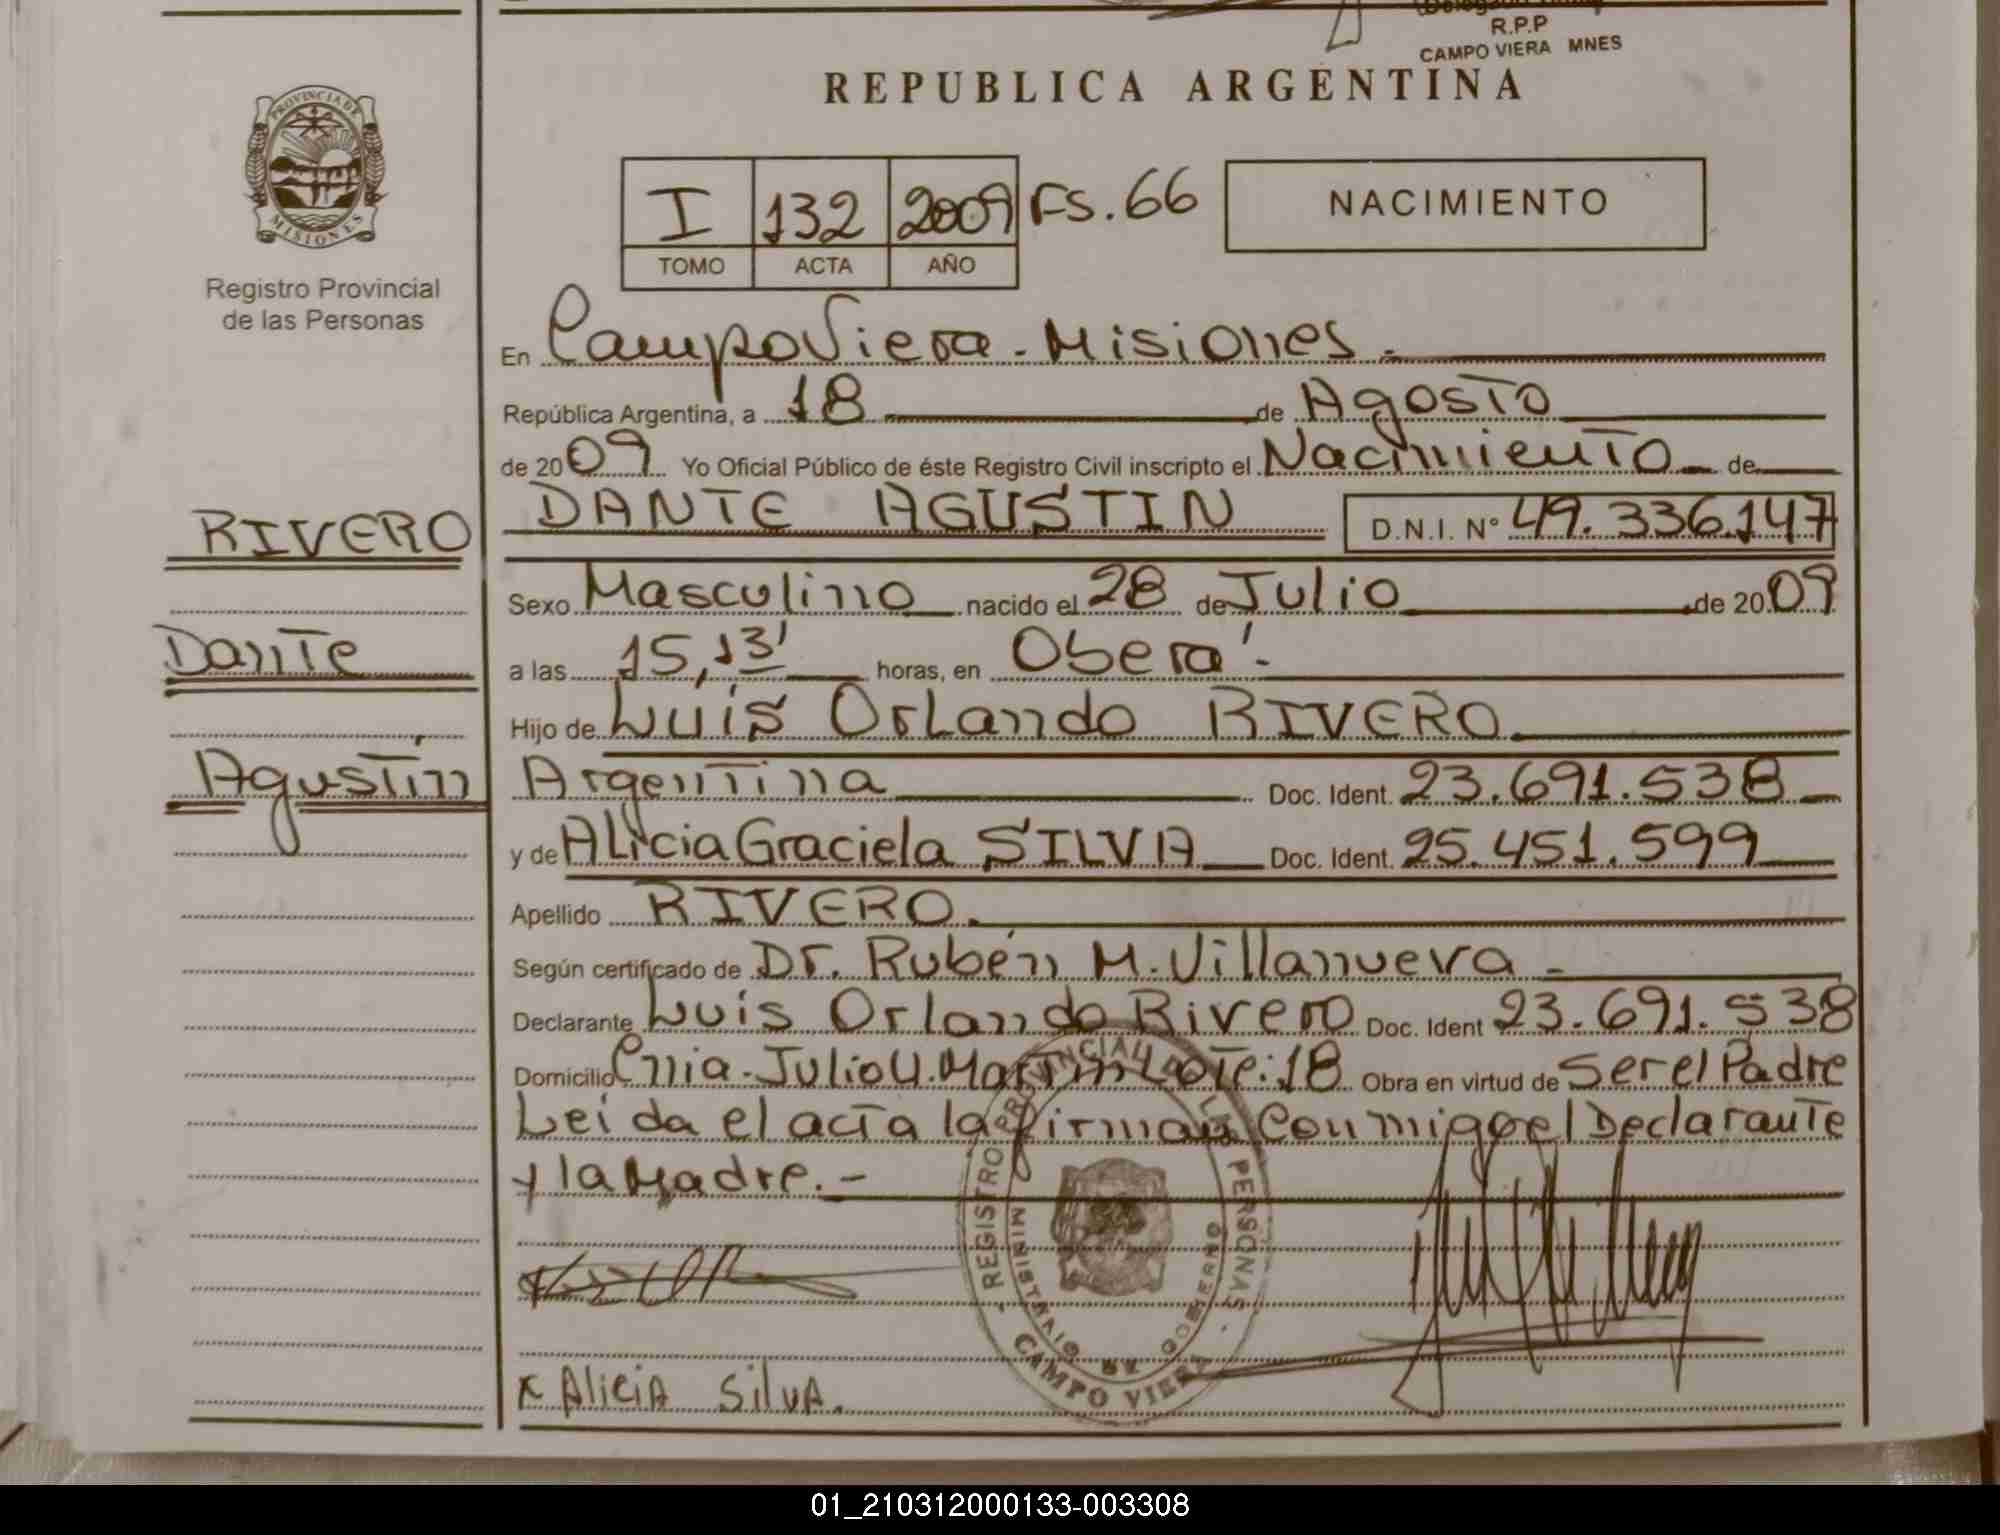 R.P.P
CAMPO VIERA MNES
REPUBLICA ARGENTINA
PROVINCIA DE
MISIONES
Registro Provincial
de las Personas
I 132 2009 FS. 66
TOMO ACTA AÑO
NACIMIENTO
En Campo Viera - Misiones.
República Argentina, a 18 de Agosto
de 2009 Yo Oficial Público de éste Registro Civil inscripto el Nacimiento de
RIVERO
Dante
Agustín
DANTE AGUSTIN D.N.I. N° 49.336.147
Sexo Masculino nacido el 28 de Julio de 2009
a las 15,13' horas, en Oberá.-
Hijo de Luis Orlando RIVERO
Argentina Doc. Ident. 23.691.538
y de Alicia Graciela SILVA Doc. Ident. 25.451.599
Apellido RIVERO.
Según certificado de Dr. Rubén M. Villanueva -
Declarante Luis Orlando Rivero Doc. Ident 23.691.538
Domicilio Cnia. Julio U. Martin Lote: 18 Obra en virtud de Ser el Padre
Leída el acta la firman Conmigo el Declarante
y la Madre.-
REGISTRO PROVINCIAL DE LAS PERSONAS
MINISTERIO DE GOBIERNO
CAMPO VIERA
x Alicia Silva.
01_210312000133-003308